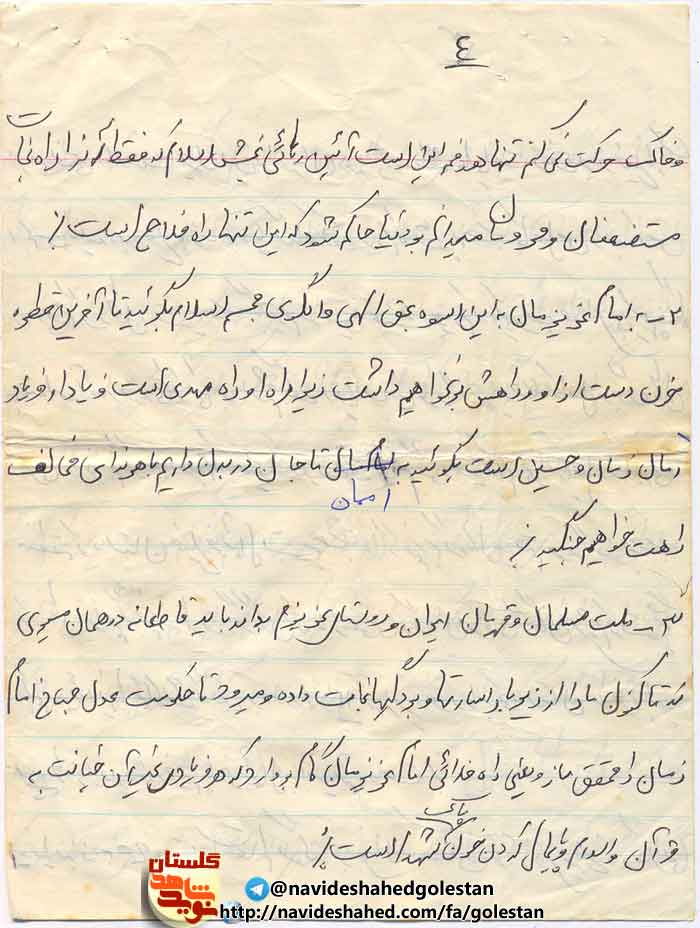 ٤
و خاک حرکت نمی کنم تنها هدفم این است آئین رهائی بخش اسلام که فقط آنرا راه نجات
مستضعفان و محرومان میدانم بر دنیا حاکم شود که این تنها راه فلاح است :
۲ – به امام عزیزمان به این اسوه بحق الهی و الگوی مجسم اسلام بگوئید تا آخرین قطره
خون دست از او و راهش بر نخواهیم داشت زیرا راه او راه مهدی است و فریاد او فریاد
امام زمان و حسین است بگوئید به امامان تا جان در بدن داریم با هر ندای مخالف
راهت خواهیم جنگید :
۳ – ملت مسلمان و قهرمان ایران و دوستان عزیزم بدانند باید قاطعانه در همان مسیری
که تاکنون ما را از زیر بار اسارتها و بردگیها نجات داده و میرود تا حکومت عدل جهانی امام
زمان را محقق سازد یعنی راه خدائی امام عزیزمان گام بردارد که هر فریادی غیر آن خیانت به
قرآن و اسلام و پایمال کردن خون پاک شهدا است :
گلستان
نوید شاهد
@navideshahedgolestan
http://navideshahed.com/fa/golestan